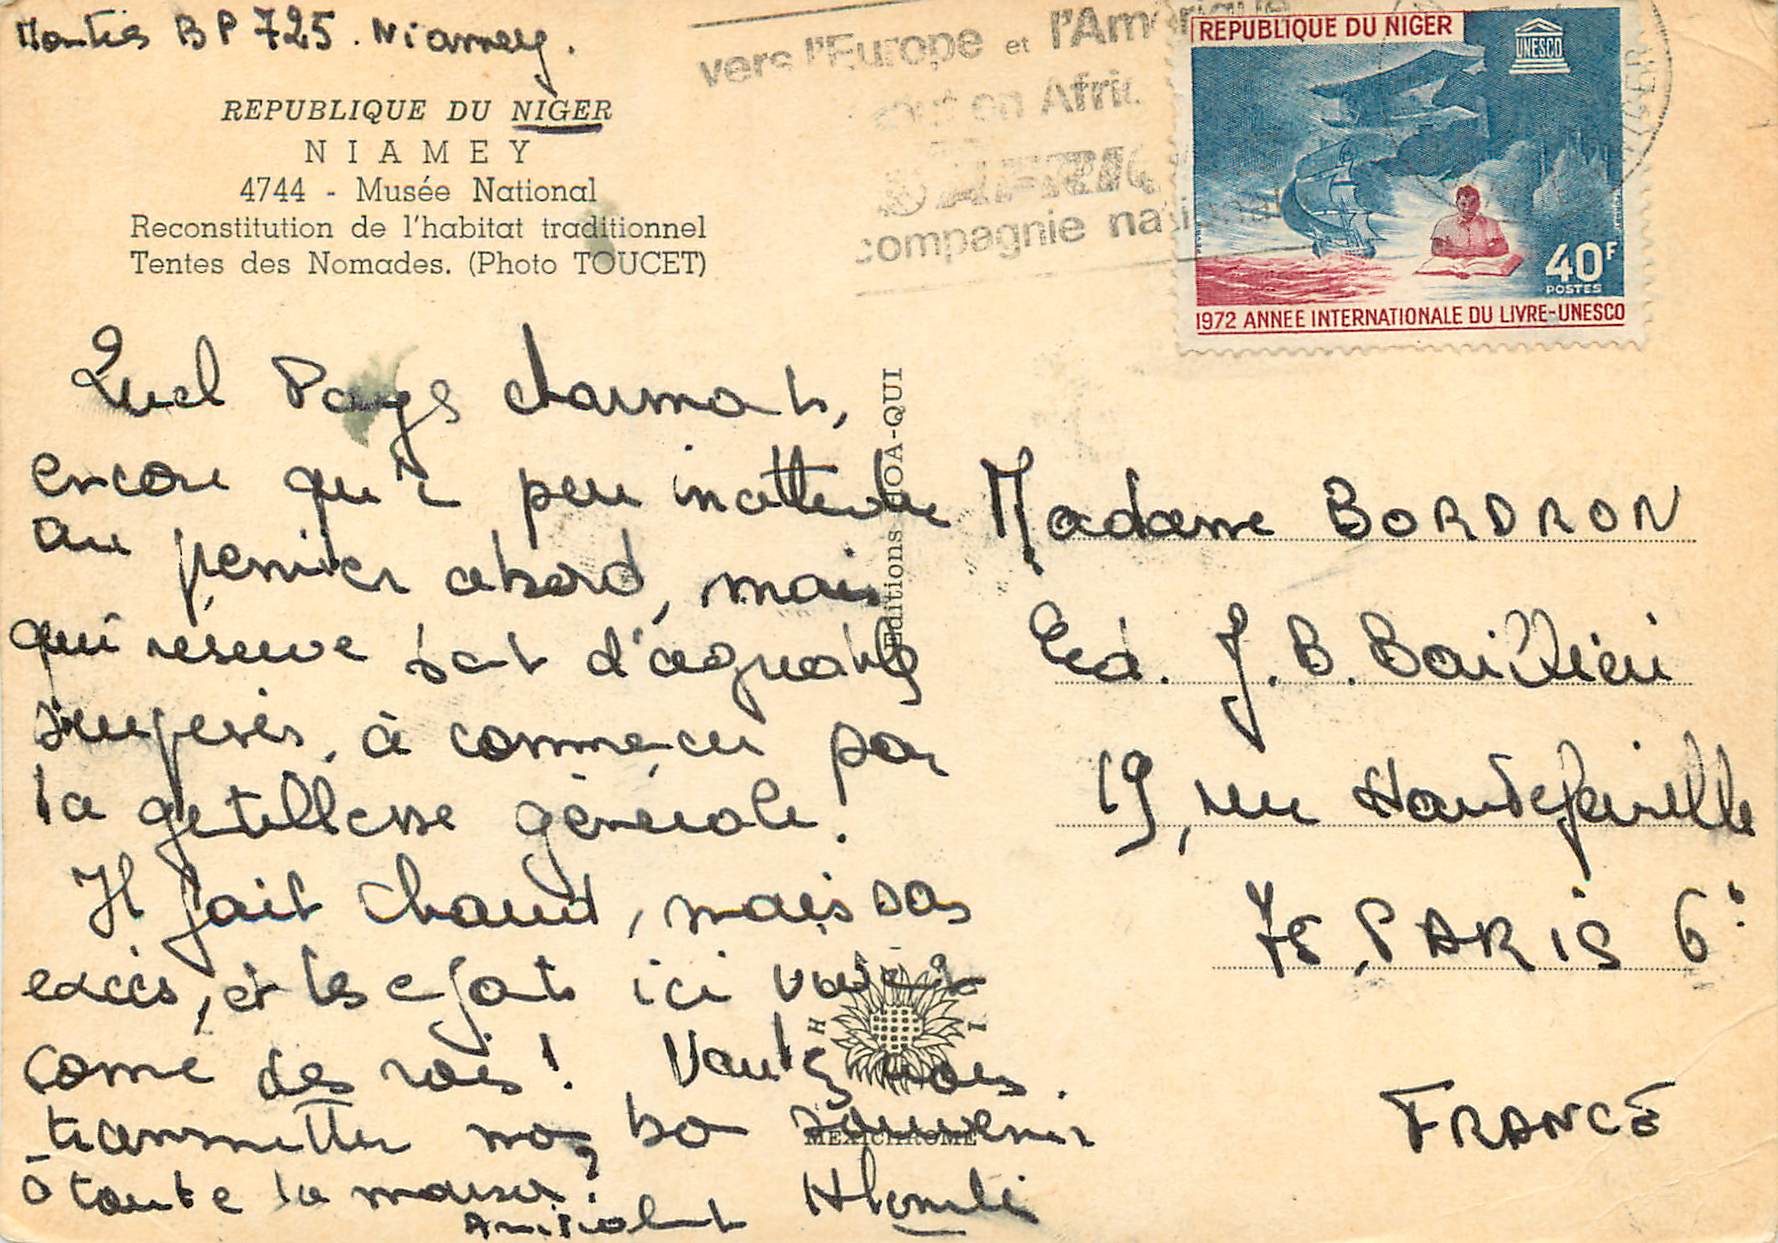 Monties BP 725. Niamey.
REPUBLIQUE DU NIGER
NIAMEY
4744 - Musée National
Reconstitution de l'habitat traditionnel
Tentes des Nomades. (Photo TOUCET)
vers l'Europe et l'Amérique
tout en Afric
AFRIQ
compagnie national
REPUBLIQUE DU NIGER
UNESCO
40F
POSTES
1972 ANNEE INTERNATIONALE DU LIVRE-UNESCO
NIGER
Quel Pays charmant,
encore qu'un peu inattendu
au premier abord, mais
qui réserve tant d'agréables
surprises, à commencer par
la gentillesse générale!
Il fait chaud, mais sans
excès, et les enfants ici vivent
comme des rois! Voulez vous
transmettre mon bon souvenir
à toute la maison!
Amicalement
Editions HOA-QUI
H I
MEXICHROME
Madame BORDRON
Ed. J. B. Baillière
19, rue Hautefeuille
75 PARIS 6e
FRANCE